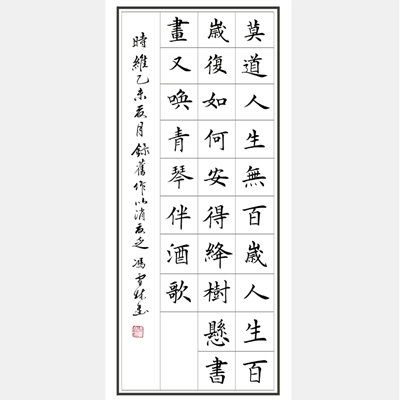 莫道人生無百歲人生百
歲復如何安得絳樹懸書
畫又喚青琴伴酒歌
時維乙未夏月錄舊作以消夏乏 馮雪林